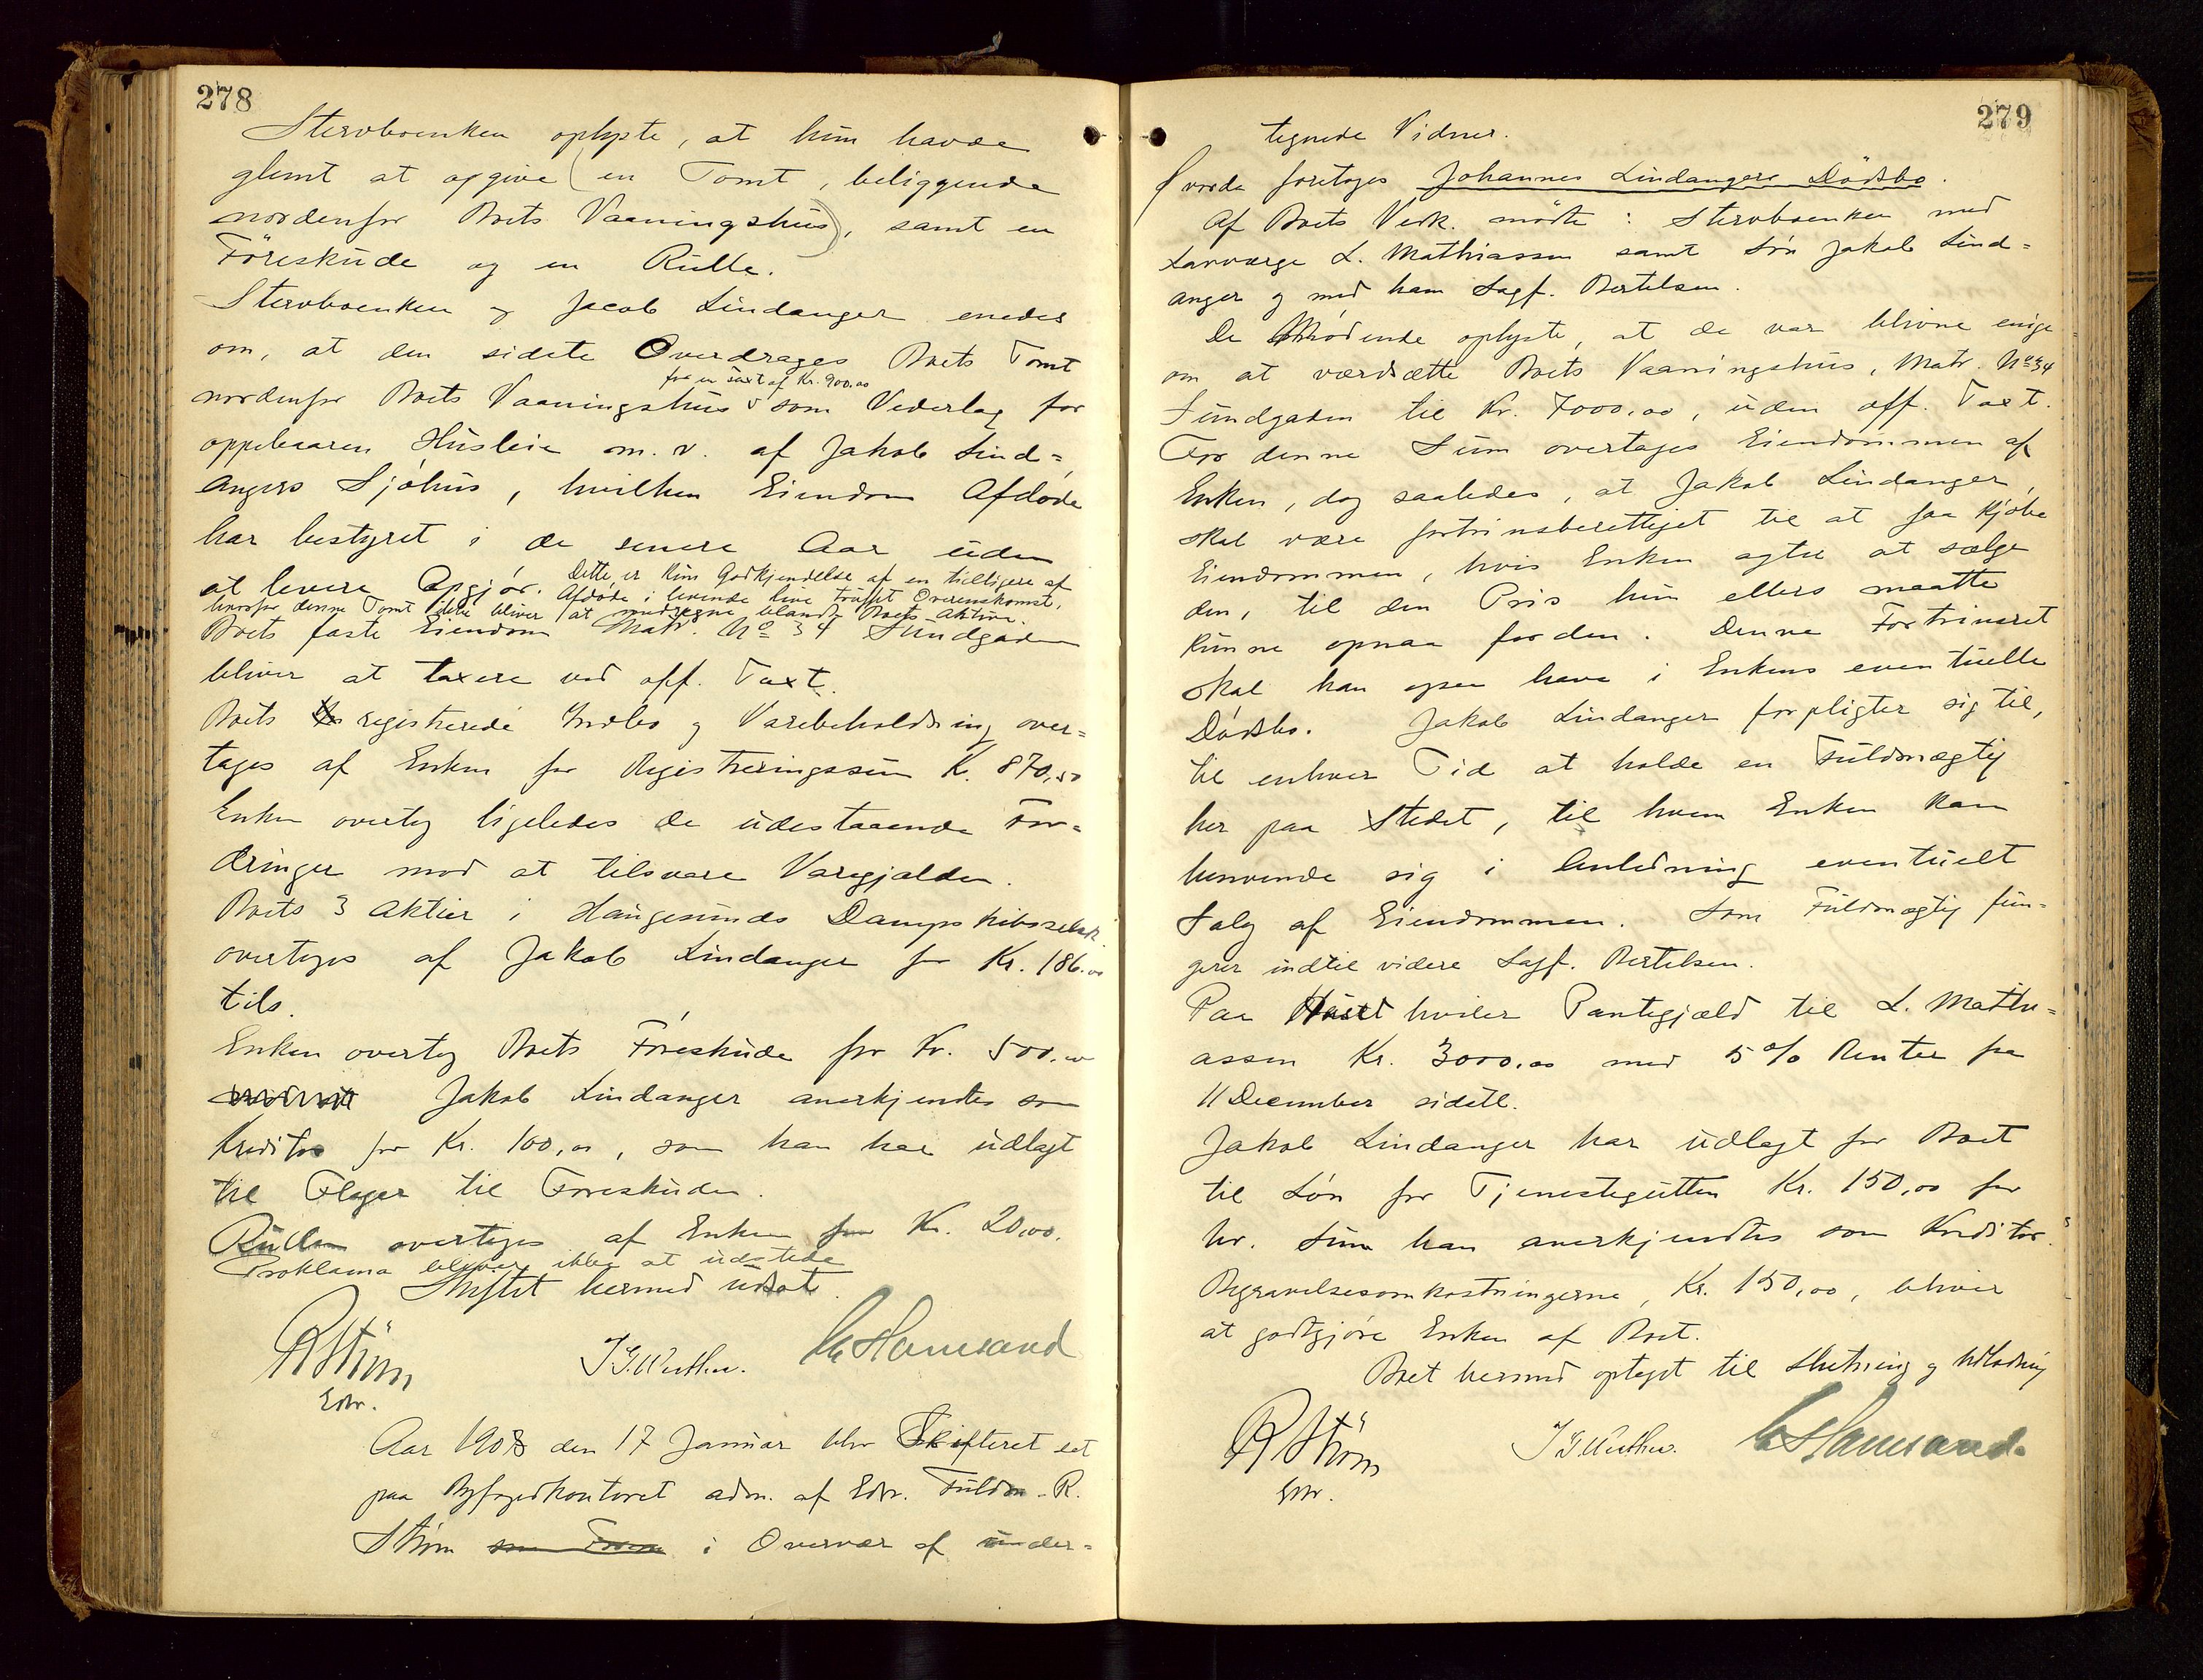 278
Stervboenken oplyste, at hun havde
glemt at opgive (en Tomt, beliggende
nordenfor Boets Vaaningshus), samt en
Föreskude og en Rulle.
Stervboenken og Jacob Lindanger enedes
om, at den sidste Overdrages Boets Tomt
for en Taxt af Kr. 900.00
nordenfor Boets Vaaningshus som Vederlag for
oppebaaren Husleie m. v. af Jakob Lind=
angers Sjöhus, hvilken Eiendom Afdöde
har bestyret i de senere Aar uden
at levere Opgjör. Dette er kun Godkjendelse af en tidligere af
Afdöde i levende Live truffet Overenskomst,
hvorfor denne Tomt ikke bliver at medregne blandt Boets Aktiva.
Boets faste Eiendom Matr. No 34 Sundgaden
bliver at taxere ved off. Taxt.
Boets registrerede Indbo og Varebeholdning over=
tages af Enken for Registreringssum K. 870,50
Enken overtog ligeledes de udestaaende For=
dringer mod at tilsvare Varegjælden.
Boets 3 Aktier i Haugesunds Dampskibsselsk.
overtages af Jakob Lindanger for Kr. 186.00
tils.
Enken overtog Boets Föreskude for Kr. 500.00
Jakob Lindanger anerkjendtes som
Kreditor for Kr. 100,00, som han har udlagt
til Flager til Föreskuden.
Rullen overtages af Enken for Kr. 20,00.
Proklama bliver ikke at udstede
Skiftet hermed udsat.
R Ström
Edsv.
J G. Wuthu. Chr Hamsand
Aar 1908 den 17 Januar blev Skifteret sat
paa Byfogedkontoret adm. af Edsv. Fuldm. R.
Ström som Form i Overvær af under=
279
tegnede Vidner.
Hvorda foretoges Johannes Lindangers Dödsbo.
Af Boets Vedk. mödte: Stervboenken med
Lavværge L. Mathiassen samt Sön Jakob Lind=
anger og med ham Sagf. Bertelsen.
De Mödende oplyste, at de var blivne enige
om at værdsætte Boets Vaaningshus, Matr. No 34
Sundgaden til Kr. 7000,00, uden off. Taxt.
For denne Sum overtages Eiendommen af
Enken, dog saaledes, at Jakob Lindanger,
skal være fortrinsberettiget til at faa kjöbe
Eiendommen, hvis Enken agter at sælge
den, til den Pris hun ellers maatte
kunne opnaa for den. Denne Fortrinsret
skal han ogsaa have i Enkens eventuelle
Dödsbo. Jakob Lindanger forpligter sig til,
til enhver Tid at holde en Fuldmægtig
her paa Stedet, til hvem Enken kan
henvende sig i Anledning eventuelt
Salg af Eiendommen. Som Fuldmægtig fun=
gerer indtil videre Sagf. Bertelsen.
Paa Huset hviler Pantegjæld til L. Mathi=
assen Kr. 3000.00 med 5 % Renter fra
11 December sidstl.
Jakob Lindanger har udlagt for Boet
til Lön for Tjenestegutten Kr. 150,00 for
hv. Sum han anerkjendtes som Kreditor.
Begravelsesomkostningerne, Kr. 150,00, bliver
at godtgjöre Enken af Boet.
Boet hermed optaget til Slutning og Udlodning
R Ström
Edsv.
J G. Wuthu. Chr Hamsand